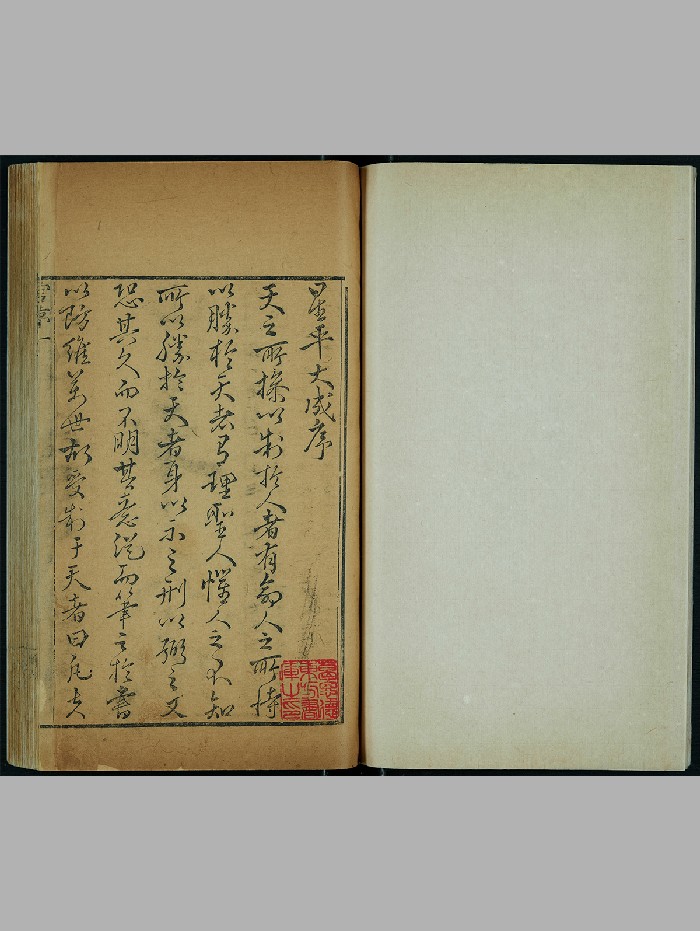 星平大成序
天之所操以制於人者有命人之所恃
以勝於天者有理聖人懼人之不知
所以勝於天者身以示之刑以弼之又
恐其久而不明其意從而筆之於書
以防維萬世故受制于天者曰凡夫